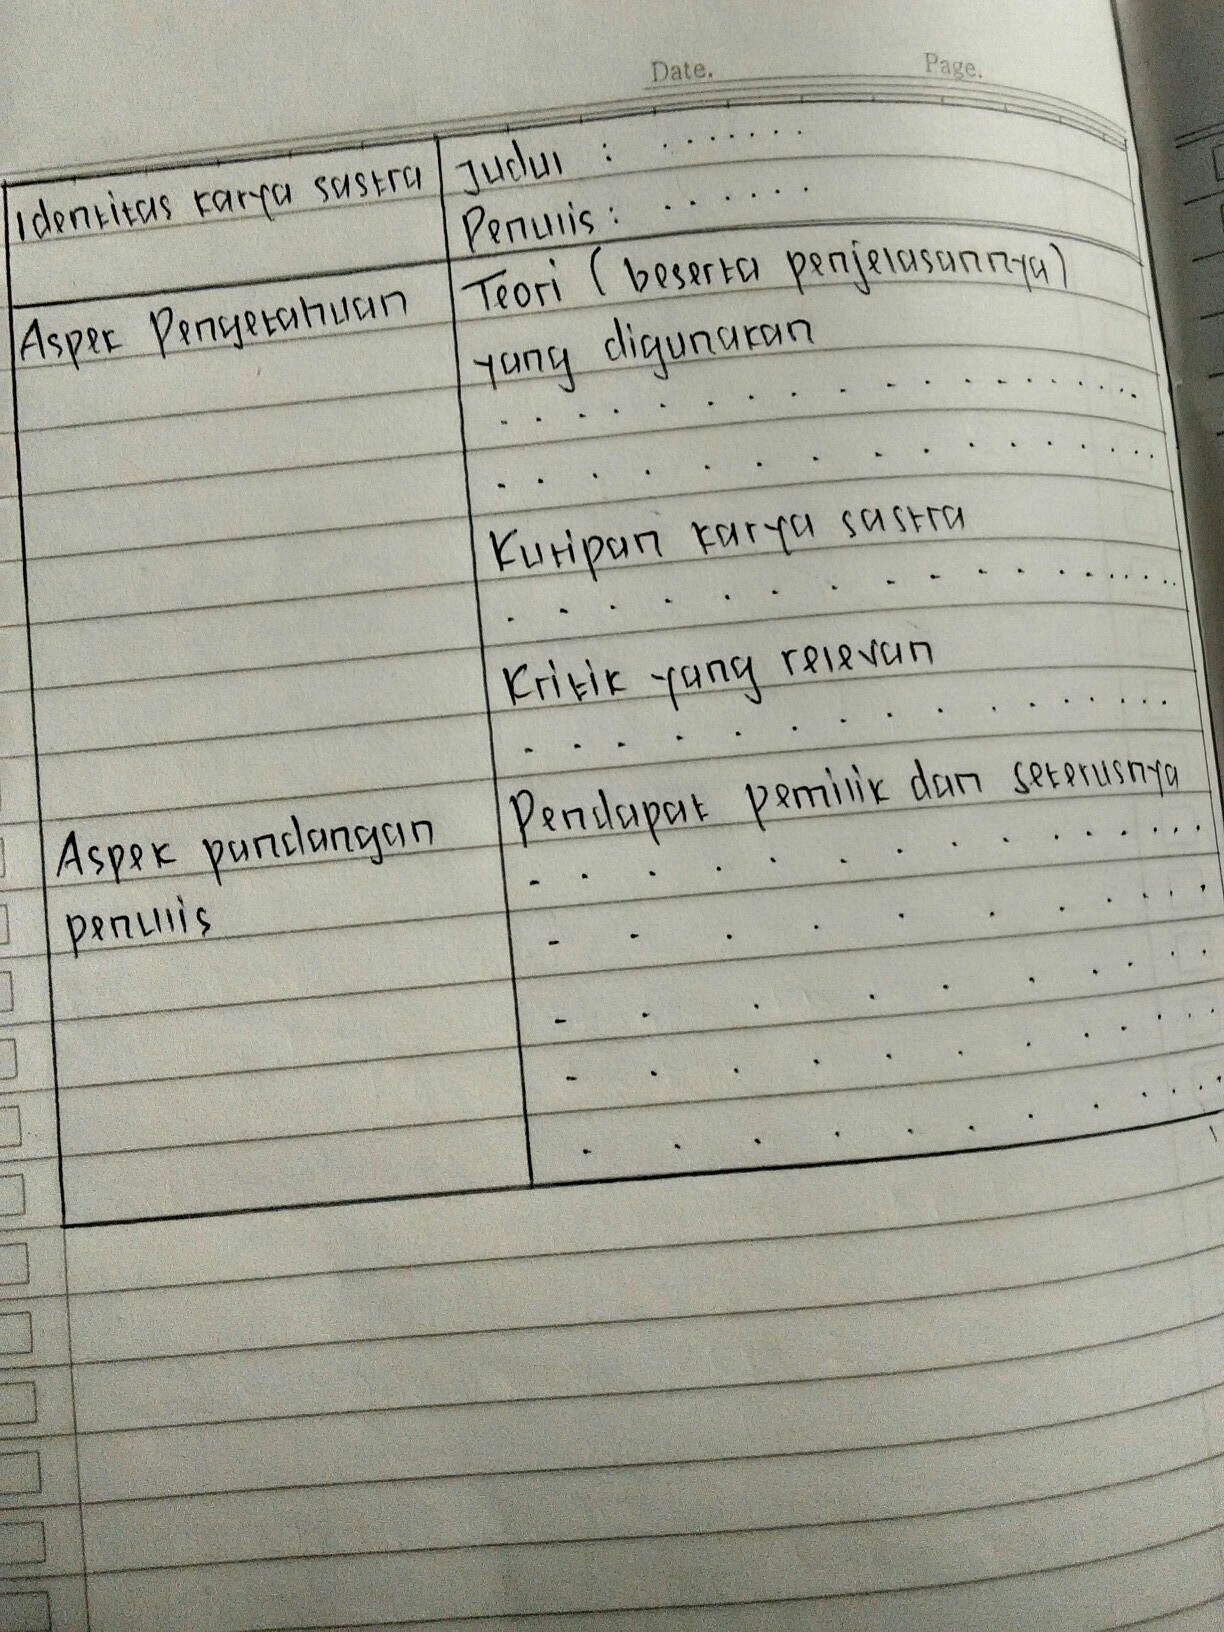 Date. Page.
Identitas karya sastra
Judul : .......
Penulis : ......
Aspek Pengetahuan
Teori (beserta penjelasannya)
yang digunakan
Kutipan karya sastra
Kritik yang relevan
Aspek pandangan
penulis
Pendapat pemilik dan seterusnya